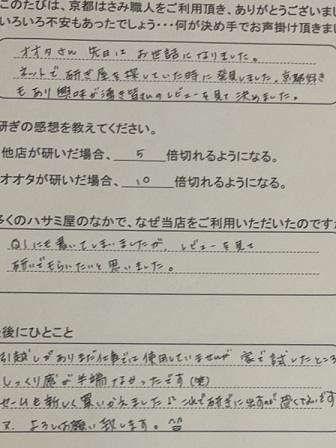 このたびは、京都はさみ職人をご利用頂き、ありがとうございま
いろいろ不安もあったでしょう・・・何が決め手でお声掛け頂きま
オオタさん 先日は お世話になりました。
ネットで研ぎ屋を探していた時に発見しました。京都好き
もあり興味が湧き皆さんのレビューを見て決めました。
研ぎの感想を教えてください。
他店が研いだ場合、 5 倍切れるようになる。
オオタが研いだ場合、 10 倍切れるようになる。
多くのハサミ屋のなかで、なぜ当店をご利用いただいたのですか
Q1にも書いてしまいましたが、レビューを見て
研いでもらいたいと思いました。
後にひとこと
引越しがありまだ仕事では使用していませんが 家で試したところ
しっくり感が半端なかったです(笑)
も新しく買いかえました
よろしくお願い致します。^^